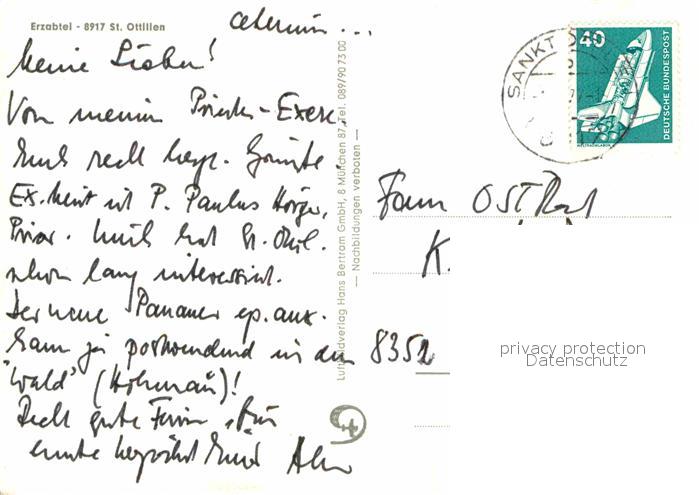 Erzabtei - 8917 St. Ottilien
ceterum...
Meine Lieben!
Von meinen Priester-Exerz.
Euch recht herzl. Grüße.
Ex. Leiter ist P. Paulus Hörger,
Prior. Mich hat St. Otil.
schon lang interessiert.
Der neue Passauer ep. aux.
kam ja postwendend in den
"Wald" (Hohenau)!
Recht gute Ferien
Euer
Luftbildverlag Hans Bertram GmbH, 8 München 87, Tel. 089/90 73 00
— Nachbildungen verboten —
SANKT O
40
DEUTSCHE BUNDESPOST
WELTRAUMLABOR
Fam OSTR
K.
8352
privacy protection
Datenschutz